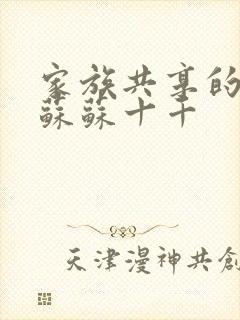 家族共享的
蘇蘇十十
天津漫神共創